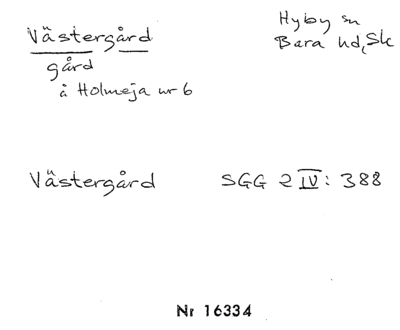 Västergård
gård
å Holmeja nr 6
Hyby sn
Bara hd, Sk
Västergård SGG 2 IV: 388
Nr 16334